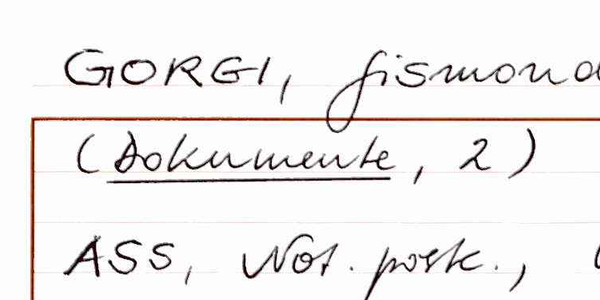 GORGI, Gismond
(Dokumente, 2)
ASS, Not. postc.,